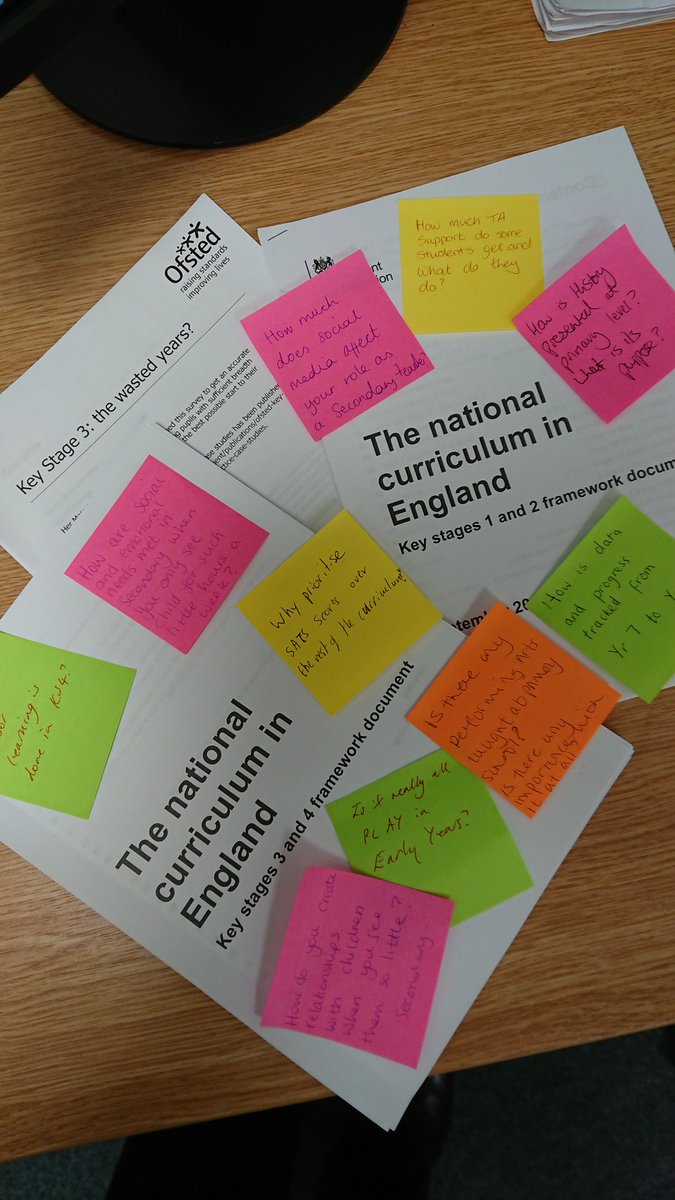 Ofsted
raising standards
improving lives
Key Stage 3: the wasted years?
ed this survey to get an accurate
g pupils with sufficient breadth
the best possible start to their
se studies has been published
ent/publications/ofsted-key-
ctice-case-studies.
Her
How much
does social
media affect
your role as
a Secondary teacher
How much TA
Support do some
students get and
what do they
do?
How is History
presented at
primary level?
What is its
purpose?
The national
curriculum in
England
Key stages 1 and 2 framework docum
How are social
and emotional
needs met in
Secondary when
you only see
child for such
little hours a
week?
Why prioritise
SATS scores over
the rest of the curriculum?
How is data
and progress
tracked from
Yr 7 to Y
Is there any
performing Arts
taught at primary
school?
Is there any
importance
it at all
learning is
done in KS4?
The national
curriculum in
England
Key stages 3 and 4 framework document
Is it really all
PLAY in
Early Years?
How do you create
relationships
with children
when you see
them so little?
Secondary.